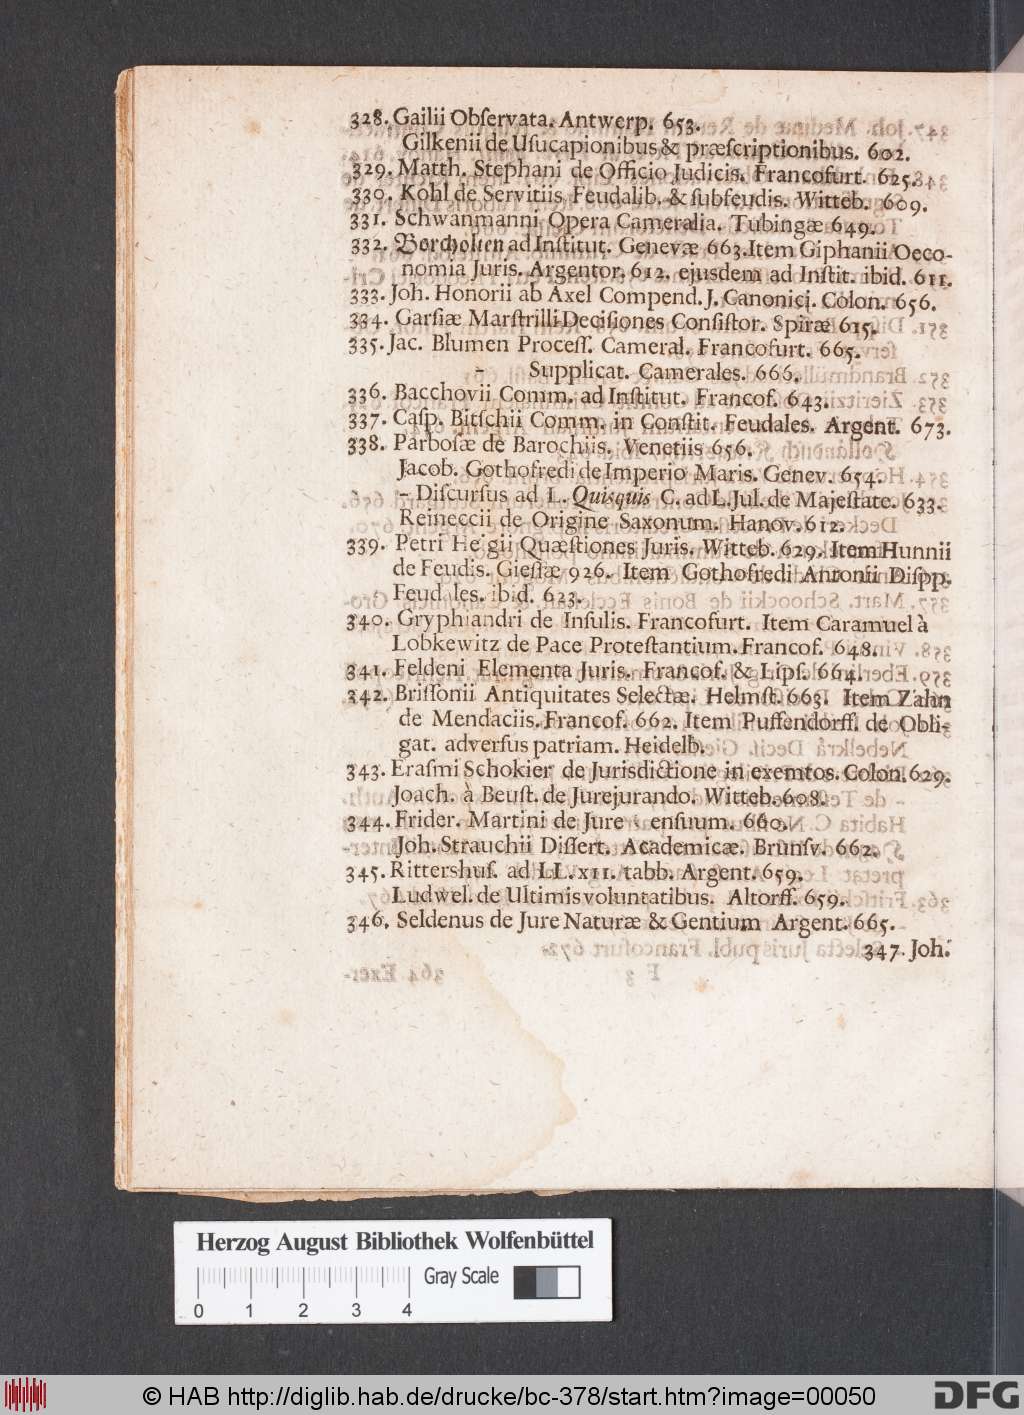 328. Gailii Obſervata. Antwerp. 653.
Gilkenii de Uſucapionibus & præſcriptionibus. 602.
329. Matth. Stephani de Officio Judicis. Francofurt. 625.
330. Kohl de Servitiis Feudalib. & ſubfeudis. Witteb. 609.
331. Schwanmanni Opera Cameralia. Tubingæ 649.
332. Borcholten ad Inſtitut. Genevæ 663. Item Giphanii Oeco-
nomia Juris. Argentor. 612. ejusdem ad Inſtit. ibid. 611.
333. Joh. Honorii ab Axel Compend. J. Canonici. Colon. 656.
334. Garſiæ Marſtrilli Deciſiones Conſiſtor. Spiræ 615.
335. Jac. Blumen Proceſſ. Cameral. Francofurt. 665.
- Supplicat. Camerales. 666.
336. Bacchovii Comm. ad Inſtitut. Francof. 643.
337. Caſp. Bitſchii Comm. in Conſtit. Feudales. Argent. 673.
338. Parboſæ de Barochiis. Venetiis 656.
Jacob. Gothofredi de Imperio Maris. Genev. 654.
- Diſcurſus ad L. Quisquis C. ad L. Jul. de Majeſtate. 633.
Reineccii de Origine Saxonum. Hanov. 612.
339. Petri Heigii Quæſtiones Juris. Witteb. 629. Item Hunnii
de Feudis. Gieſſæ 926. Item Gothofredi Antonii Diſpp.
Feudales. ibid. 623.
340. Gryphiandri de Inſulis. Francofurt. Item Caramuel à
Lobkewitz de Pace Proteſtantium. Francof. 648.
341. Feldeni Elementa Juris. Francof. & Lipſ. 664.
342. Briſſonii Antiquitates Selectæ. Helmſt. 663. Item Zahn
de Mendaciis. Francof. 662. Item Puffendorff. de Obli-
gat. adverſus patriam. Heidelb.
343. Eraſmi Schokier de Jurisdictione in exemtos. Colon. 629.
Joach. à Beuſt. de Jurejurando. Witteb. 608.
344. Frider. Martini de Jure ensuum. 660.
Joh. Strauchii Diſſert. Academicæ. Brunſv. 662.
345. Rittershuſ. ad LL. XII. tabb. Argent. 659.
Ludwel. de Ultimis voluntatibus. Altorff. 659.
346. Seldenus de Jure Naturæ & Gentium Argent. 665.
347. Joh.
Herzog August Bibliothek Wolfenbüttel
Gray Scale
0 1 2 3 4
© HAB http://diglib.hab.de/drucke/bc-378/start.htm?image=00050
DFG